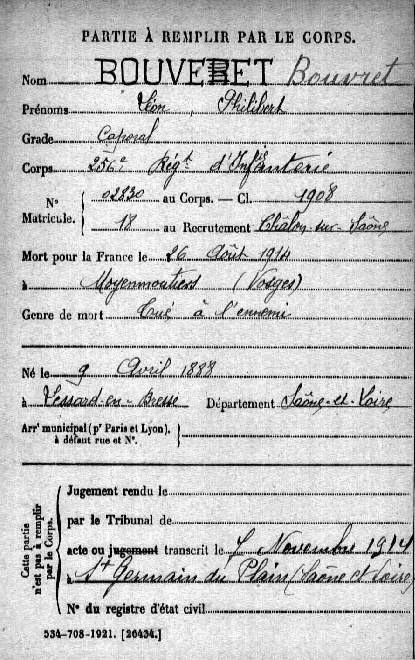 PARTIE À REMPLIR PAR LE CORPS.
Nom BOUVERET Bouvret
Prénoms Léon, Philibert
Grade Caporal
Corps 256e Régt d'Infanterie
N° Matricule. { 02830 au Corps. — Cl. 1908
18 au Recrutement Châlon-sur-Saône
Mort pour la France le 26 Août 1914
à Moyenmoutiers (Vosges)
Genre de mort Tué à l'ennemi
Né le 9 Avril 1888
à Lessard-en-Bresse Département Saône-et-Loire
Arrt municipal (pr Paris et Lyon), à défaut rue et N°. }
Cette partie n'est pas à remplir par le Corps.
Jugement rendu le
par le Tribunal de
acte ou jugement transcrit le 7 Novembre 1914
à St Germain du Plain (Saône et Loire)
N° du registre d'état civil
534-708-1921. [26434.]